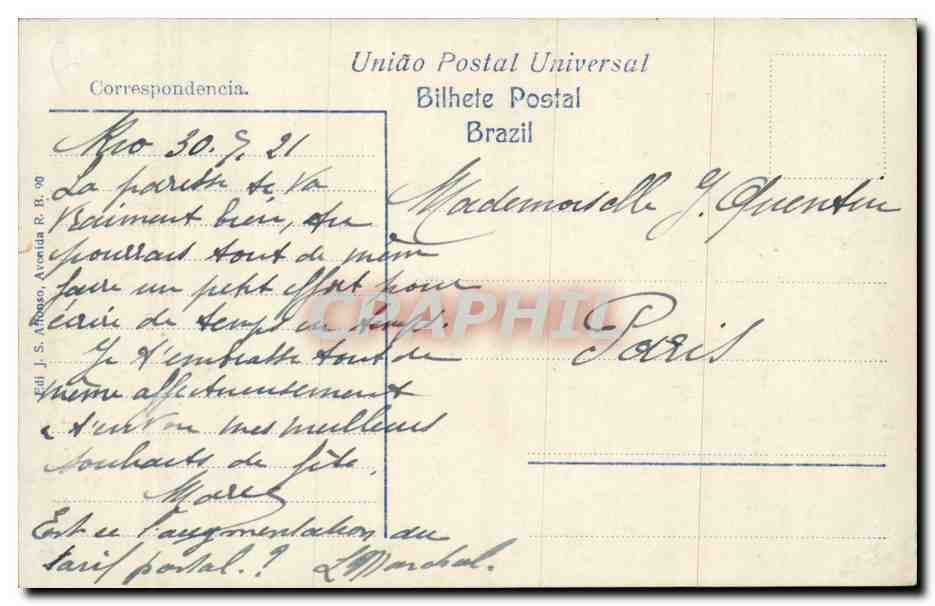 União Postal Universal
Bilhete Postal
Brazil
Correspondencia.
Rio 30.5.21
La paresse te va
vraiment bien, tu
pourrais tout de même
faire un petit effort pour
écrire de temps en temps.
Je t'embrasse tout de
même affectueusement
& t'envoie mes meilleurs
souhaits de fête.
Marc
Est ce l'augmentation du
tarif postal.?
Mademoiselle Y. Quentin
Paris
Edi J. S. Affonso, Avenida R. B. 90
CRAPHIL